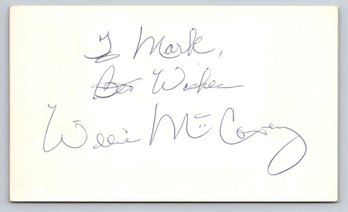 To Mark,
Best Wishes
Willie McCovey